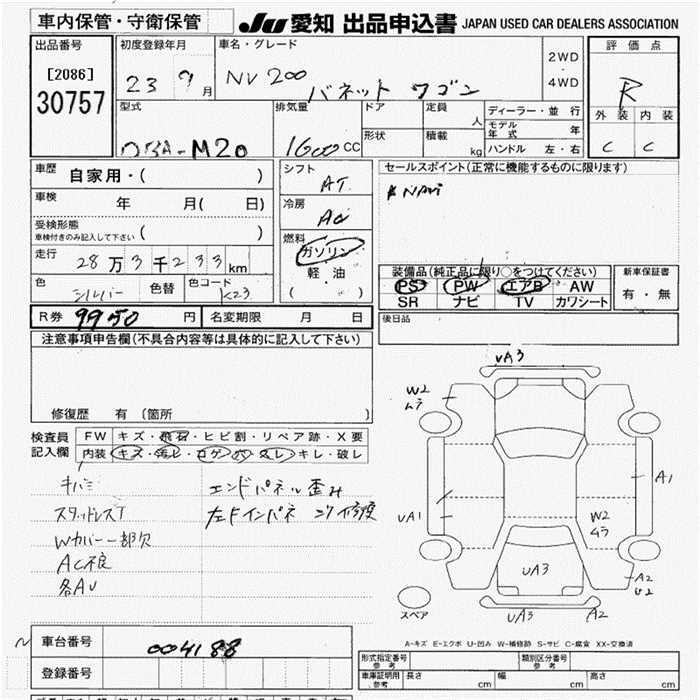 車内保管・守衛保管
JU 愛知 出品申込書 JAPAN USED CAR DEALERS ASSOCIATION
出品番号
[2086]
30757
初度登録年月
23 9月
車名・グレード
NV200 バネット ワゴン
2WD
・
4WD
評価点
R
外装 内装
C C
型式
DBA-M20
排気量
1600cc
ドア
形状
定員 人
積載 kg
ディーラー・並行
モデル年式 年
ハンドル 左・右
車歴 自家用・( )
車検 年 月( 日)
受検形態
車検付きのみ記入して下さい ( )
走行 28万3千233km
色 シルバー 色替 色コード K23
シフト
AT
冷房
AC
燃料
ガソリン
軽油
( )
セールスポイント(正常に機能するものに限ります)
NAVi
装備品(純正品に限り○をつけてください)
PS PW エアB AW
SR ナビ TV カワシート
新車保証書
有・無
R券 9950円 名変期限 月 日
後日品
注意事項申告欄(不具合内容等は具体的に記入して下さい)
修復歴 有 (箇所 )
検査員
記入欄
FW キズ・飛石・ヒビ割・リペア跡・X要
内装 キズ・汚レ・コゲ・穴・スレ・キレ・破レ
キバミ
スタッドレスT
Wカバー一部欠
AC不良
各AU
エンドパネル歪み
左ドインパネ コワ修复
UA3
W2
ムラ
A1
UA1
W2
ムラ
UA3
A2
U2
スペア
UA3
A2
A-キズ E-エクボ U-凹み W-補修跡 S-サビ C-腐食 XX-交換済
車台番号 004188
登録番号
形式指定番号
参考
類別区分番号
参考
車庫証明用
参考
長さ cm 幅 cm 高さ cm